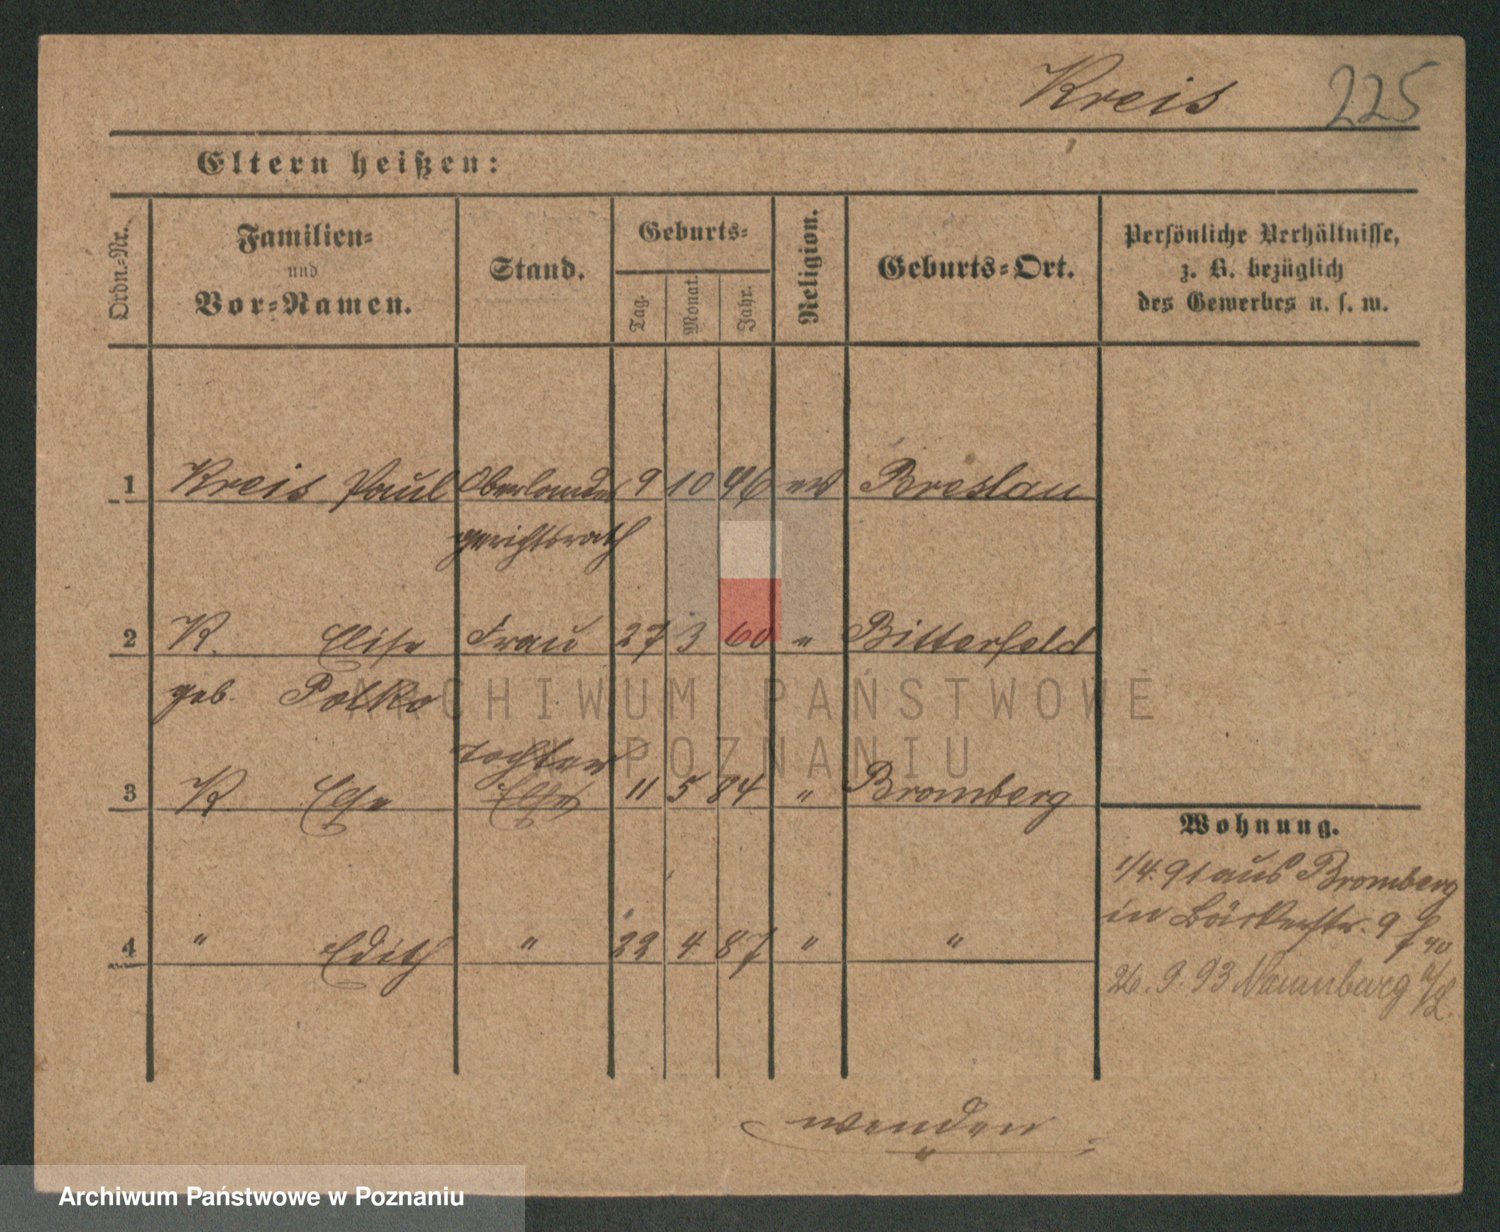 Kreis 225
Eltern heißen:
Ordn.-Nr.
Familien-
und
Vor-Namen.
Stand.
Geburts-
Tag.
Monat.
Jahr.
Religion.
Geburts-Ort.
Persönliche Verhältnisse,
z. B. bezüglich
des Gewerbes u. s. w.
1 Kreis Paul Oberlandes 9 10 46 ev Breslau
gerichtsrath
2 K. Elise Frau 27 3 60 " Bitterfeld
geb. Polko
Tochter
3 K Else Else 11 5 84 " Bromberg
4 " Edith " 22 4 87 " "
Wohnung.
1/4. 91 aus Bromberg
in Bäckerstr. 9
26. 9. 93 Naumburg
wenden
ARCHIWUM PAŃSTWOWE
W POZNANIU
Archiwum Państwowe w Poznaniu